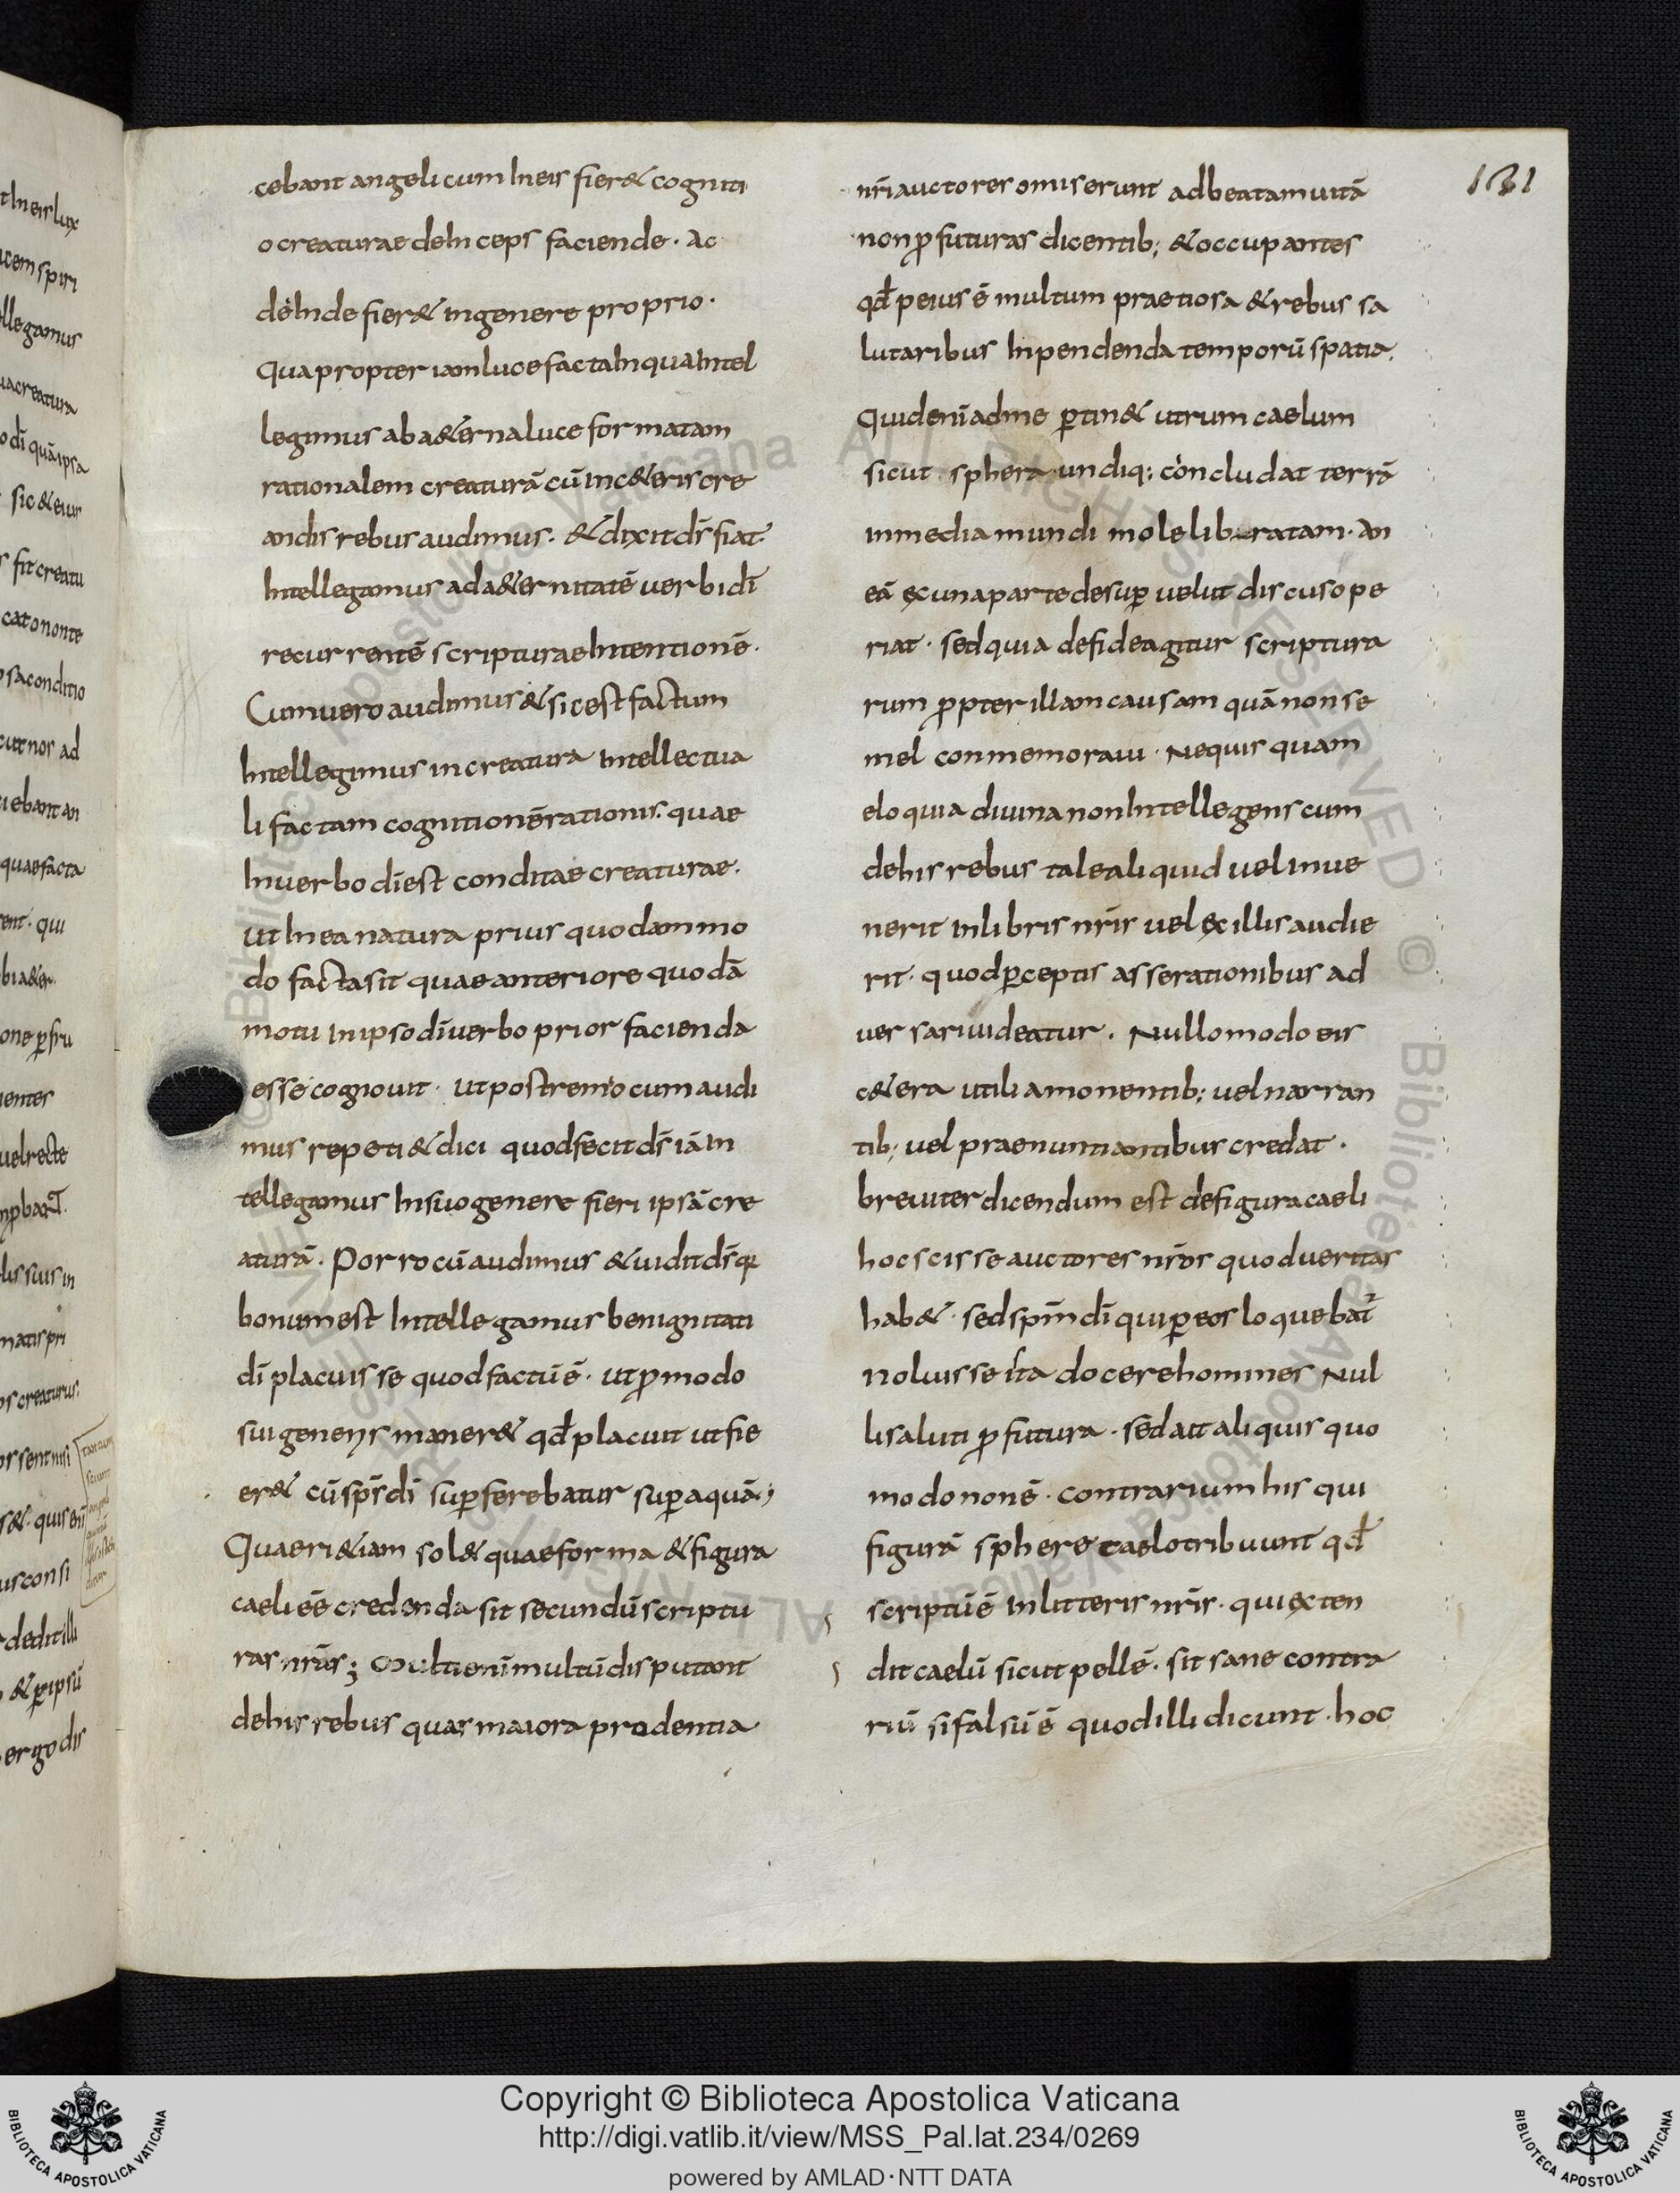 cebant angeli cum in eis fier& cogniti
o creaturae deinceps faciende · ac
dehinde fier& in genere proprio ·
Quapropter iam luce facta in qua intel
legimus ab a&erna luce formatam
rationalem creaturā cū in c&eris cre
andis rebus audimus · & dixit dr̄ fiat ·
Intellegamus ad a&ernitatē uerbi dī
recurrentē scripturae intentionē ·
Cum uero audimus & sic est factum
Intellegimus in creatura intellectua
li factam cognitionē rationis · quae
In uerbo dī est conditae creaturae ·
ut in ea natura prius quodammo
do facta sit quae anteriore quodā
motu in ipso dī uerbo prior facienda
esse cognouit · ut postremo cum audi
mus repeti & dici quod fecit ds̄ iā in
tellegamus In suo genere fieri ipsā cre
aturā · Porro cū audimus & uidit ds̄ qr
bonum est Intellegamus benignitati
dī placuisse quod factū ē · ut ꝓ modo
sui generis maner& qđ placuit ut fie
er& cū sps̄ dī suꝑferebatur suꝑ aquā ;
Quaeri &iam sol& quae forma & figura
caeli eē credenda sit secundū scriptu
ras nr̄as ; Multi enī multū disputant
de his rebus quas maiora prodentia
131
nr̄i auctores omiserunt ad beatam uitā
non ꝓfuturas dicentib; & occupantes
qđ peius ē multum praetiosa & rebus sa
lutaribus inpendenda temporū spatia ·
Quid enī ad me ꝑtin& utrum caelum
sicut sphera undiq; concludat terrā
in media mundi mole libratam · an
eā ex una parte desuꝑ uelut discus ope
riat · sed quia de fide agitur scriptura
rum ꝓpter illam causam quā non se
mel conmemoraui · Ne quis quam
eloquia diuina non Intellegens cum
de his rebus tale aliquid uel inue
nerit in libris nr̄is uel ex illis audie
rit · quod ꝑceptis asserationibus ad
uersari uideatur · Nullo modo eis
c&era utilia monentib; uel narran
tib; uel praenuntiantibus credat ·
breuiter dicendum est de figura caeli
hoc scisse auctores nr̄os quod ueritas
hab& · sed spm̄ dī qui ꝑ eos loquebat᷑
noluisse ita docere homines Nul
li saluti ꝓfutura · sed ait aliquis quo
modo non ē · contrarium his qui
figurā sphere caelo tribuunt qđ
scriptū ē in litteris nr̄is · qui exten
dit caelū sicut pellē · sit sane contra
riū si falsū ē quod illi dicunt · hoc
Copyright © Biblioteca Apostolica Vaticana
http://digi.vatlib.it/view/MSS_Pal.lat.234/0269
powered by AMLAD·NTT DATA
BIBLIOTECA APOSTOLICA VATICANA
BIBLIOTECA APOSTOLICA VATICANA